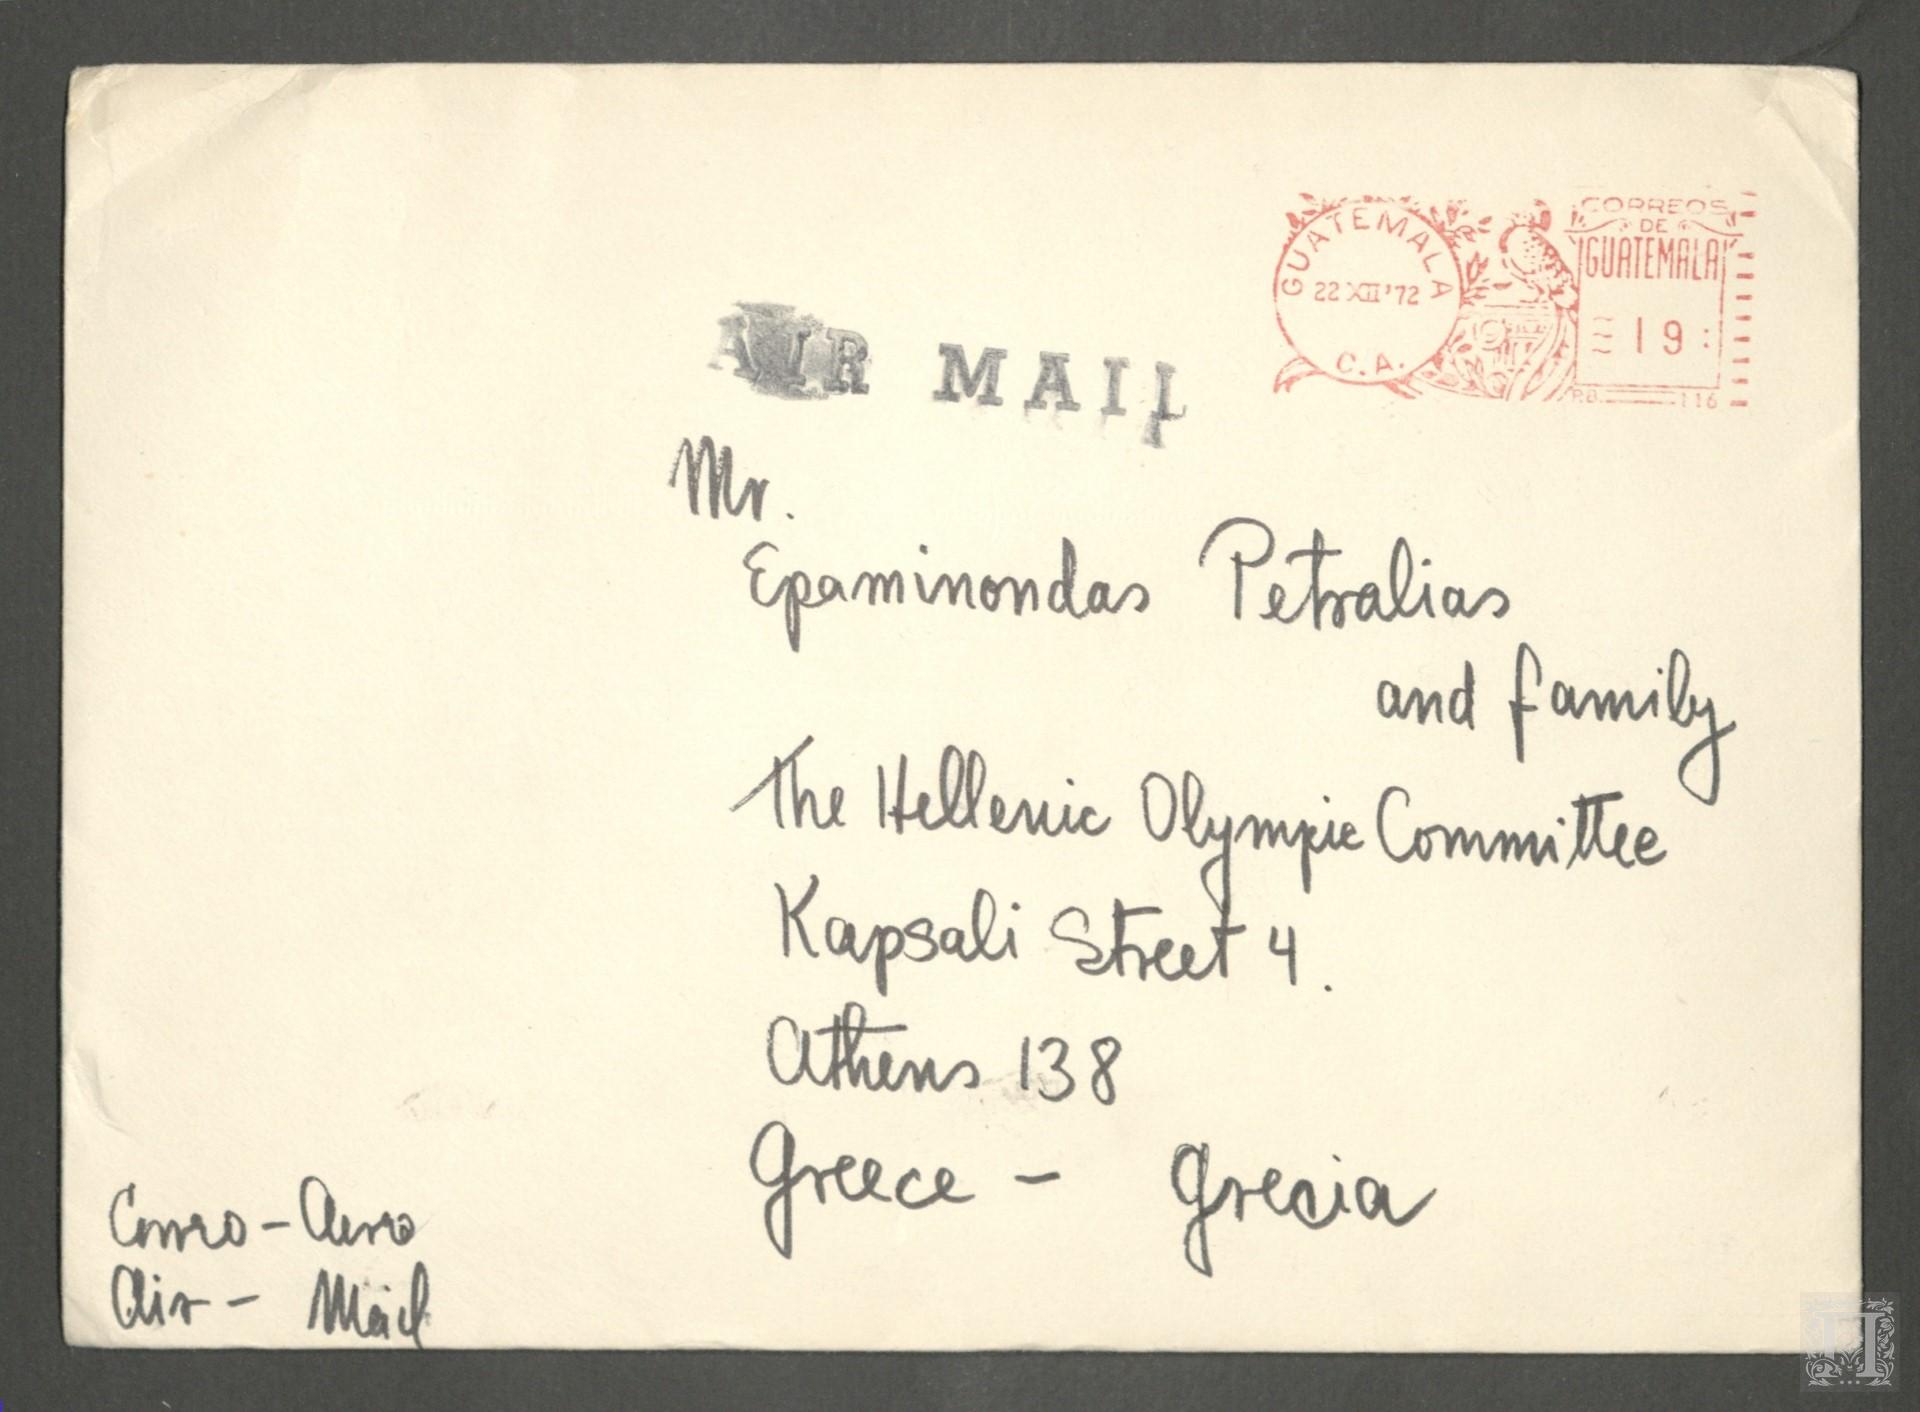 GUATEMALA
22 XII '72
C.A.
CORREOS
DE
GUATEMALA
19
P.B. 116
AIR MAIL
Mr.
Epaminondas Petralias
and family
The Hellenic Olympic Committee
Kapsali Street 4.
Athens 138
Greece - Grecia
Correo - Aereo
Air - Mail